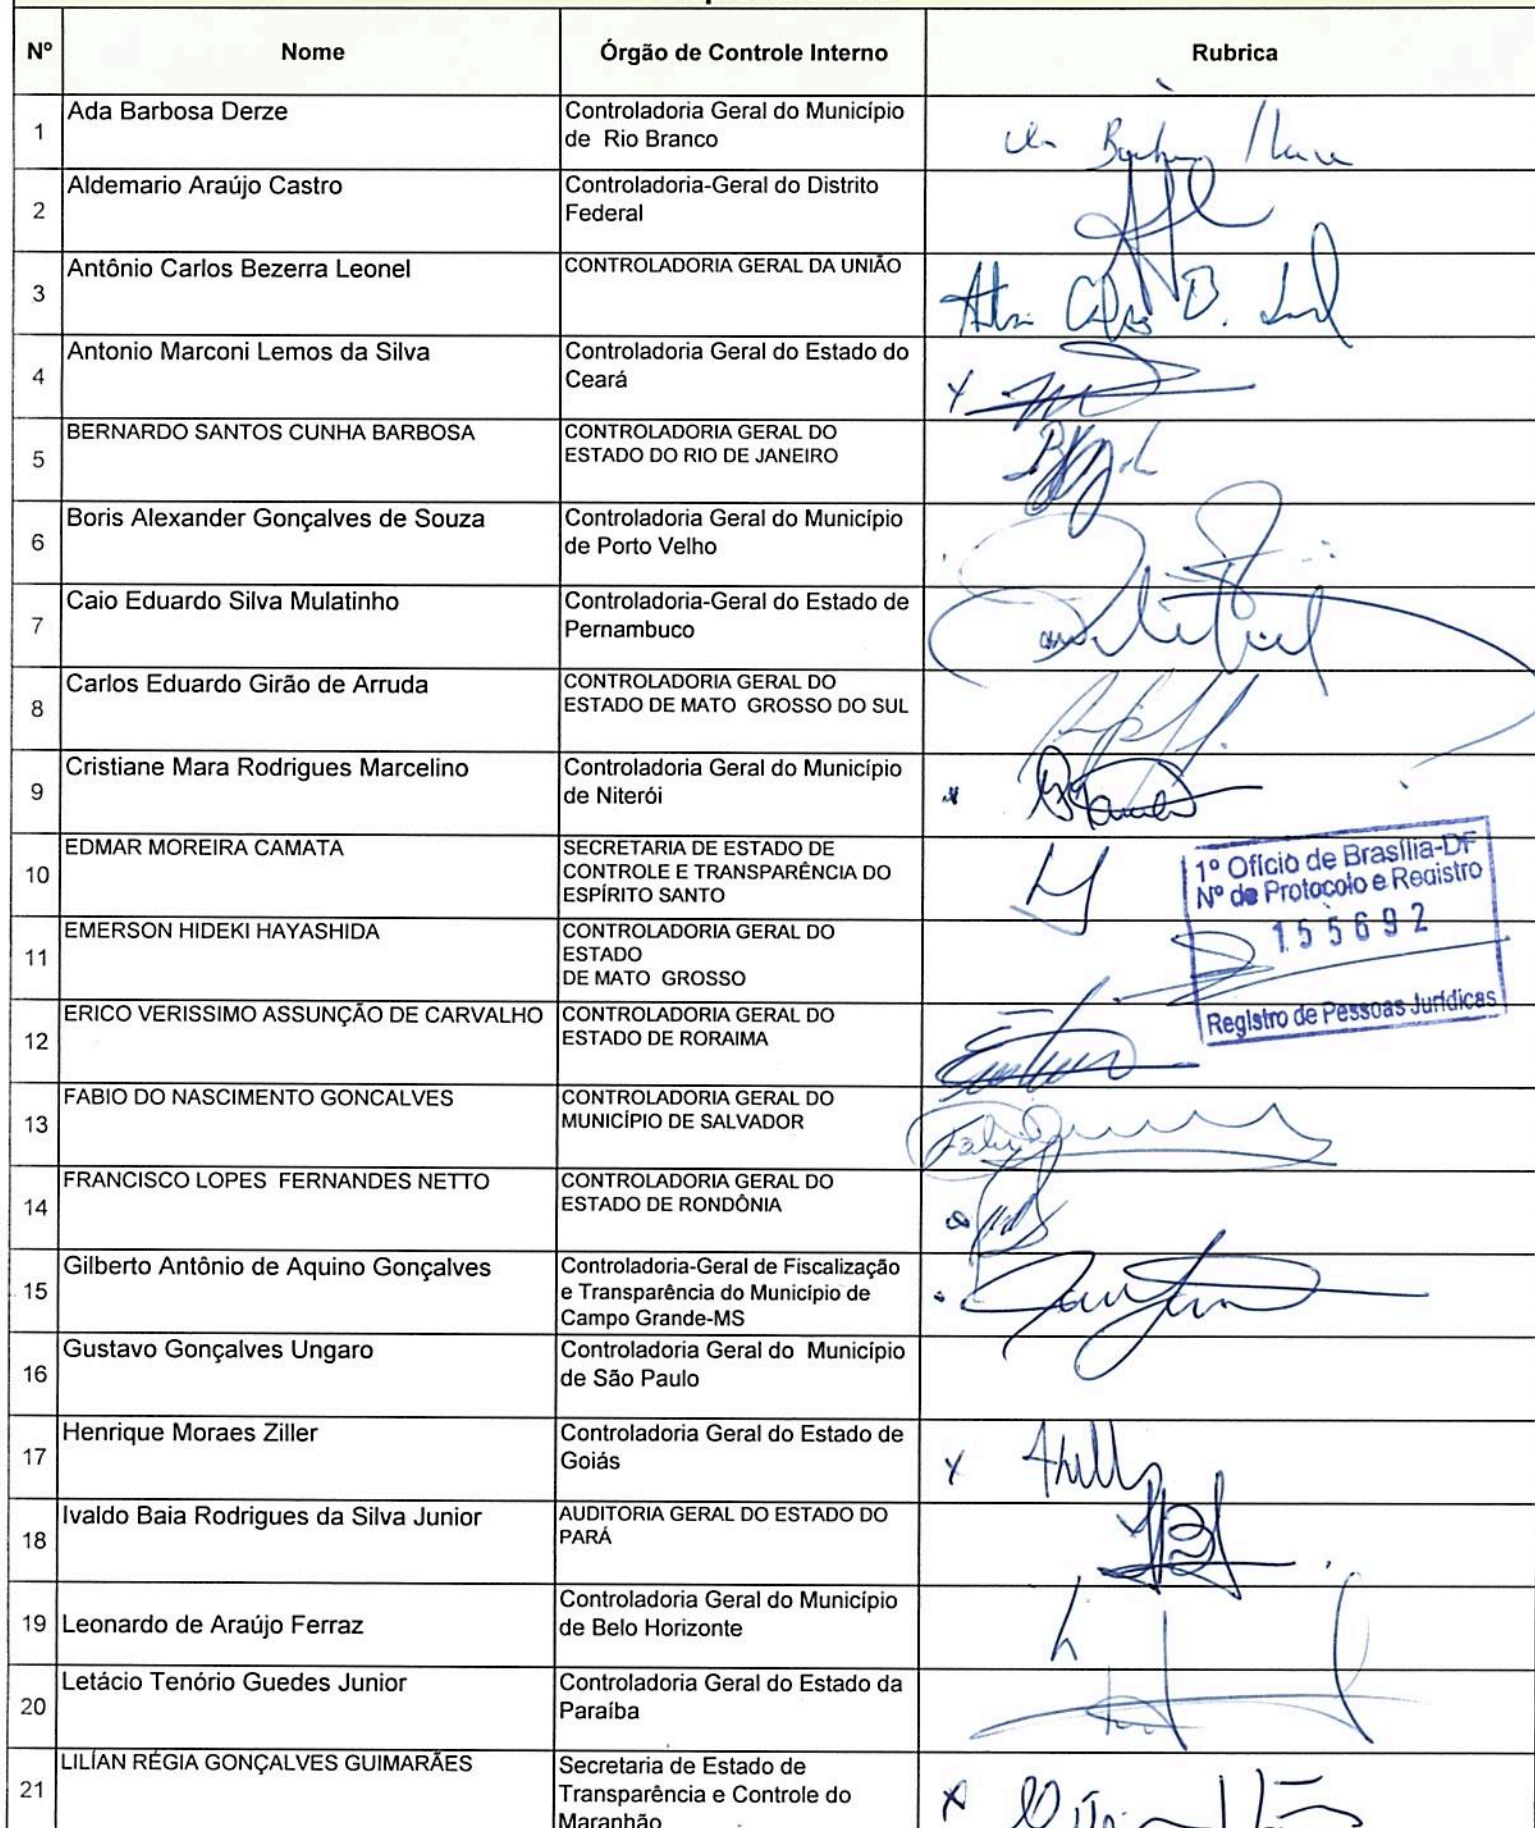 Nº Nome Órgão de Controle Interno Rubrica
1 Ada Barbosa Derze Controladoria Geral do Município
de Rio Branco
2 Aldemario Araújo Castro Controladoria-Geral do Distrito
Federal
3 Antônio Carlos Bezerra Leonel CONTROLADORIA GERAL DA UNIÃO
4 Antonio Marconi Lemos da Silva Controladoria Geral do Estado do
Ceará
5 BERNARDO SANTOS CUNHA BARBOSA CONTROLADORIA GERAL DO
ESTADO DO RIO DE JANEIRO
6 Boris Alexander Gonçalves de Souza Controladoria Geral do Município
de Porto Velho
7 Caio Eduardo Silva Mulatinho Controladoria-Geral do Estado de
Pernambuco
8 Carlos Eduardo Girão de Arruda CONTROLADORIA GERAL DO
ESTADO DE MATO GROSSO DO SUL
9 Cristiane Mara Rodrigues Marcelino Controladoria Geral do Município
de Niterói
10 EDMAR MOREIRA CAMATA SECRETARIA DE ESTADO DE
CONTROLE E TRANSPARÊNCIA DO
ESPÍRITO SANTO
1º Ofício de Brasília-DF
Nº de Protocolo e Registro
155692
Registro de Pessoas Jurídicas
11 EMERSON HIDEKI HAYASHIDA CONTROLADORIA GERAL DO
ESTADO
DE MATO GROSSO
12 ERICO VERISSIMO ASSUNÇÃO DE CARVALHO CONTROLADORIA GERAL DO
ESTADO DE RORAIMA
13 FABIO DO NASCIMENTO GONCALVES CONTROLADORIA GERAL DO
MUNICÍPIO DE SALVADOR
14 FRANCISCO LOPES FERNANDES NETTO CONTROLADORIA GERAL DO
ESTADO DE RONDÔNIA
15 Gilberto Antônio de Aquino Gonçalves Controladoria-Geral de Fiscalização
e Transparência do Município de
Campo Grande-MS
16 Gustavo Gonçalves Ungaro Controladoria Geral do Município
de São Paulo
17 Henrique Moraes Ziller Controladoria Geral do Estado de
Goiás
18 Ivaldo Baia Rodrigues da Silva Junior AUDITORIA GERAL DO ESTADO DO
PARÁ
19 Leonardo de Araújo Ferraz Controladoria Geral do Município
de Belo Horizonte
20 Letácio Tenório Guedes Junior Controladoria Geral do Estado da
Paraíba
21 LILÍAN RÉGIA GONÇALVES GUIMARÃES Secretaria de Estado de
Transparência e Controle do
Maranhão